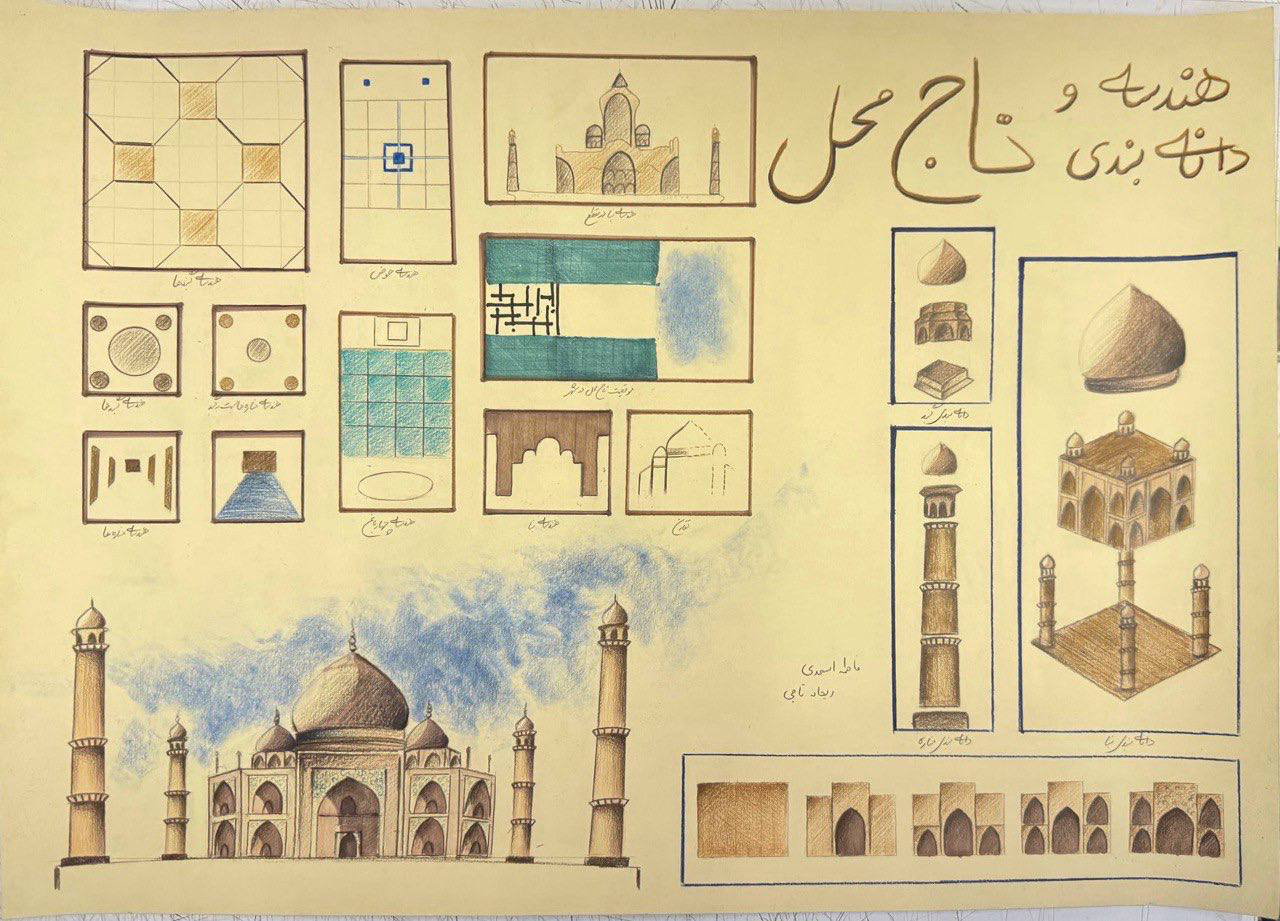 هندسه و
دانه بندی
تاج محل
هندسه گنبدها
هندسه حوض
هندسه نما در مقطع
موقعیت تاج محل در شهر
هندسه گنبدها
هندسه چهارباغ
هندسه نما
هندسه مناره‌ها
دانه بندی گنبد
دانه بندی مناره
دانه بندی بنا
فاطمه اسعدی
ریحانه تاجی